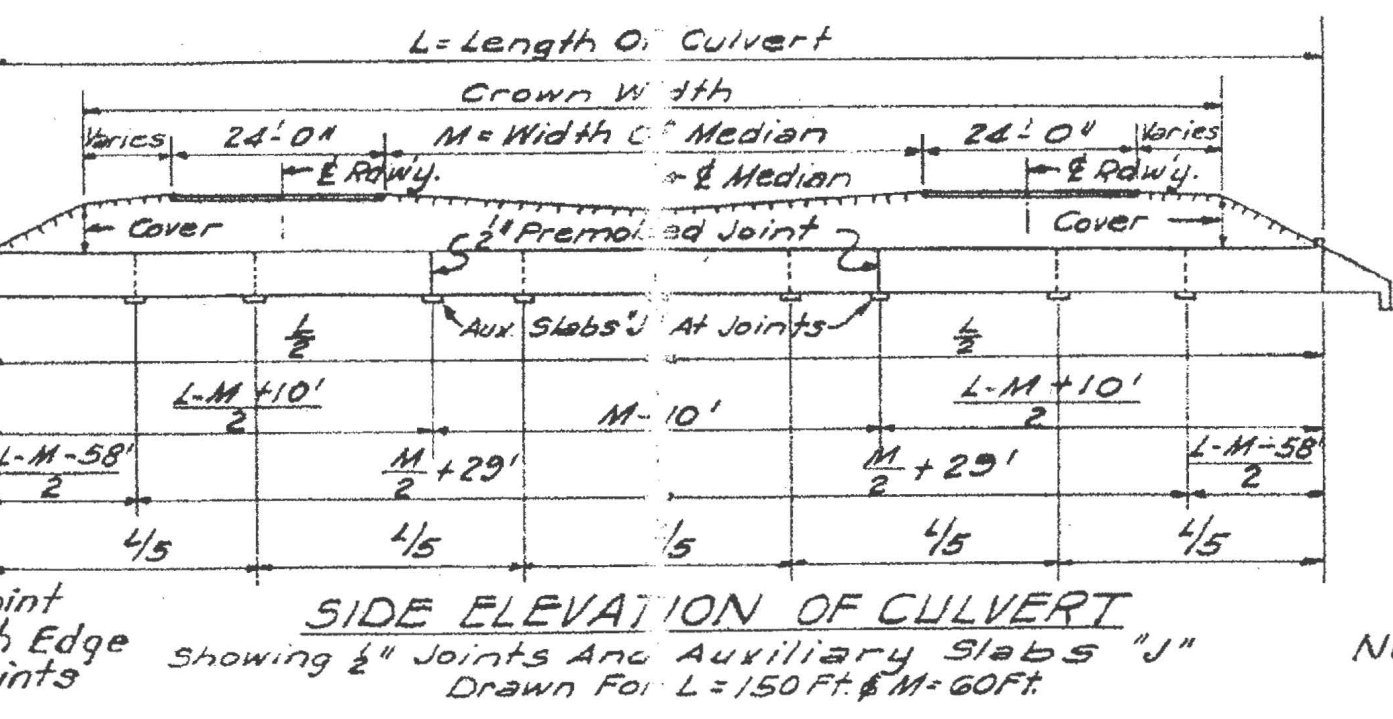 L = Length Of Culvert
Crown Width
Varies 24'-0" M = Width Of Median 24'-0" Varies
℄ Rdw'y. ℄ Median ℄ Rdw'y.
Cover ½" Premolded Joint Cover
Aux. Slabs "J" At Joints
L/2 L/2
L-M+10'/2 M-10' L-M+10'/2
L-M-58'/2 M/2 + 29' M/2 + 29' L-M-58'/2
L/5 L/5 /5 L/5 L/5
SIDE ELEVATION OF CULVERT
Showing ½" Joints And Auxiliary Slabs "J"
Drawn For L = 150 Ft. & M = 60 Ft.
oint
h Edge
ints